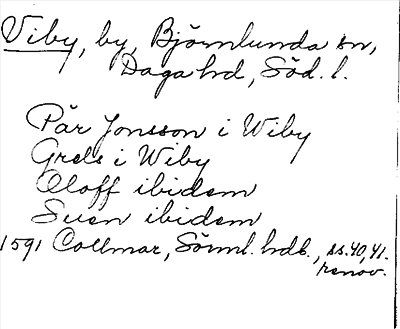 Viby, by, Björnlunda sn,
Daga hd, Söd. l.
Pär Jonsson i Wiby
Grels i Wiby
Oloff ibidem
Suen ibidem
1591 Collmar, Sörml. hdl., ss. 40, 41.
renov.